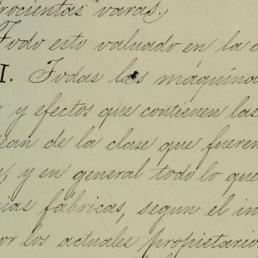 rocientas varas;
Todo esto valuado en la c
I. Todas las máquina
y efectos que contienen las
ean de la clase que fueren
, y en general todo lo que
ias fábricas, segun el in
or los actuales propietario